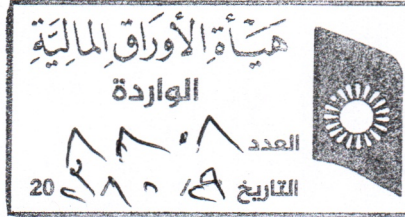 هَيْأَةُ الأَورَاقِ المَالِيَّةِ
الواردة
العدد ٨٨٠٨
التاريخ 20